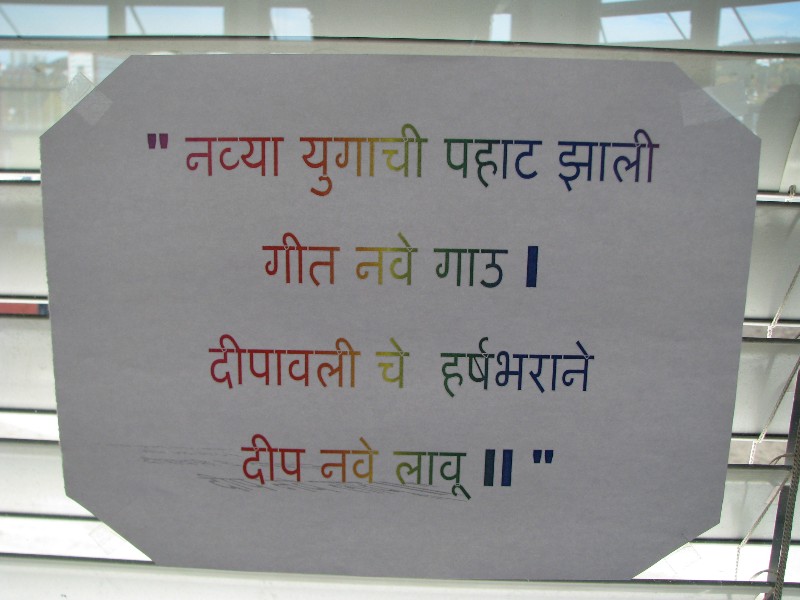 " नव्या युगाची पहाट झाली
गीत नवे गाउ ।
दीपावली चे हर्षभराने
दीप नवे लावू ॥ "